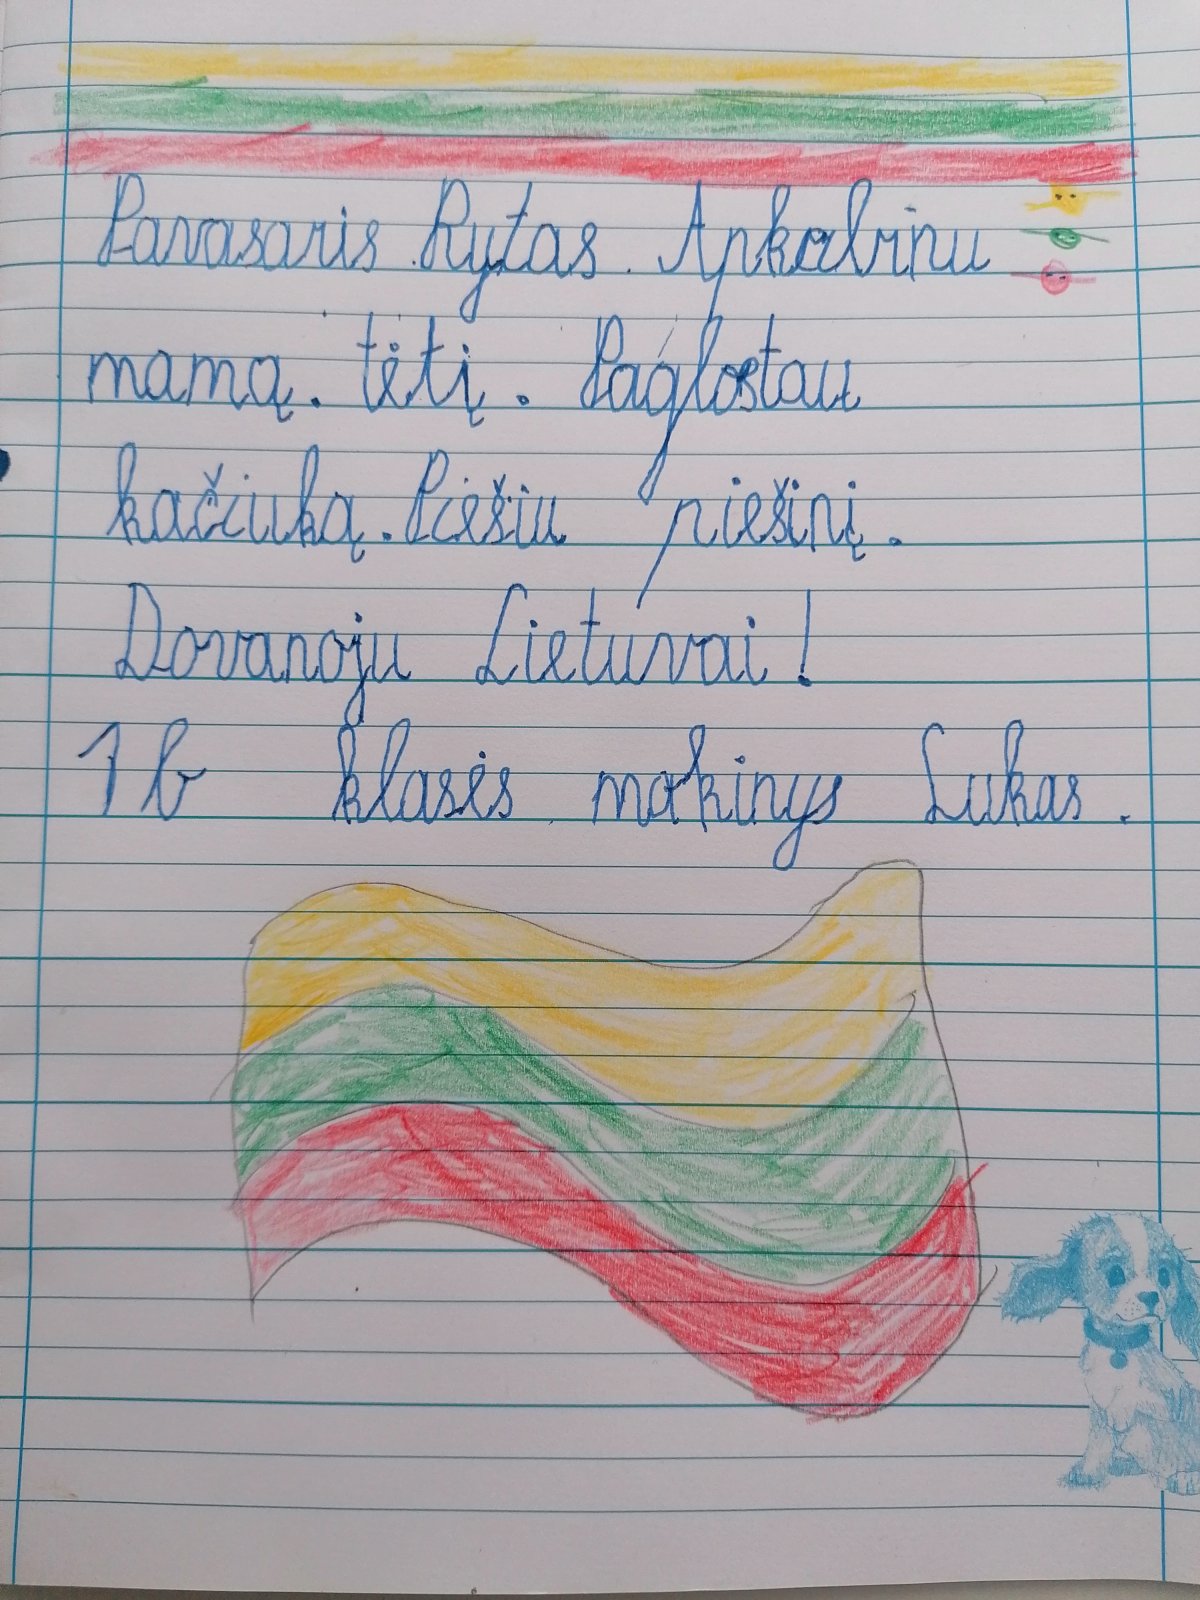 Pavasaris. Rytas. Apkabinu
mamą. tėtį. Paglostau
kačiuką. Piešiu piešinį.
Dovanoju Lietuvai!
1b klasės mokinys Lukas.